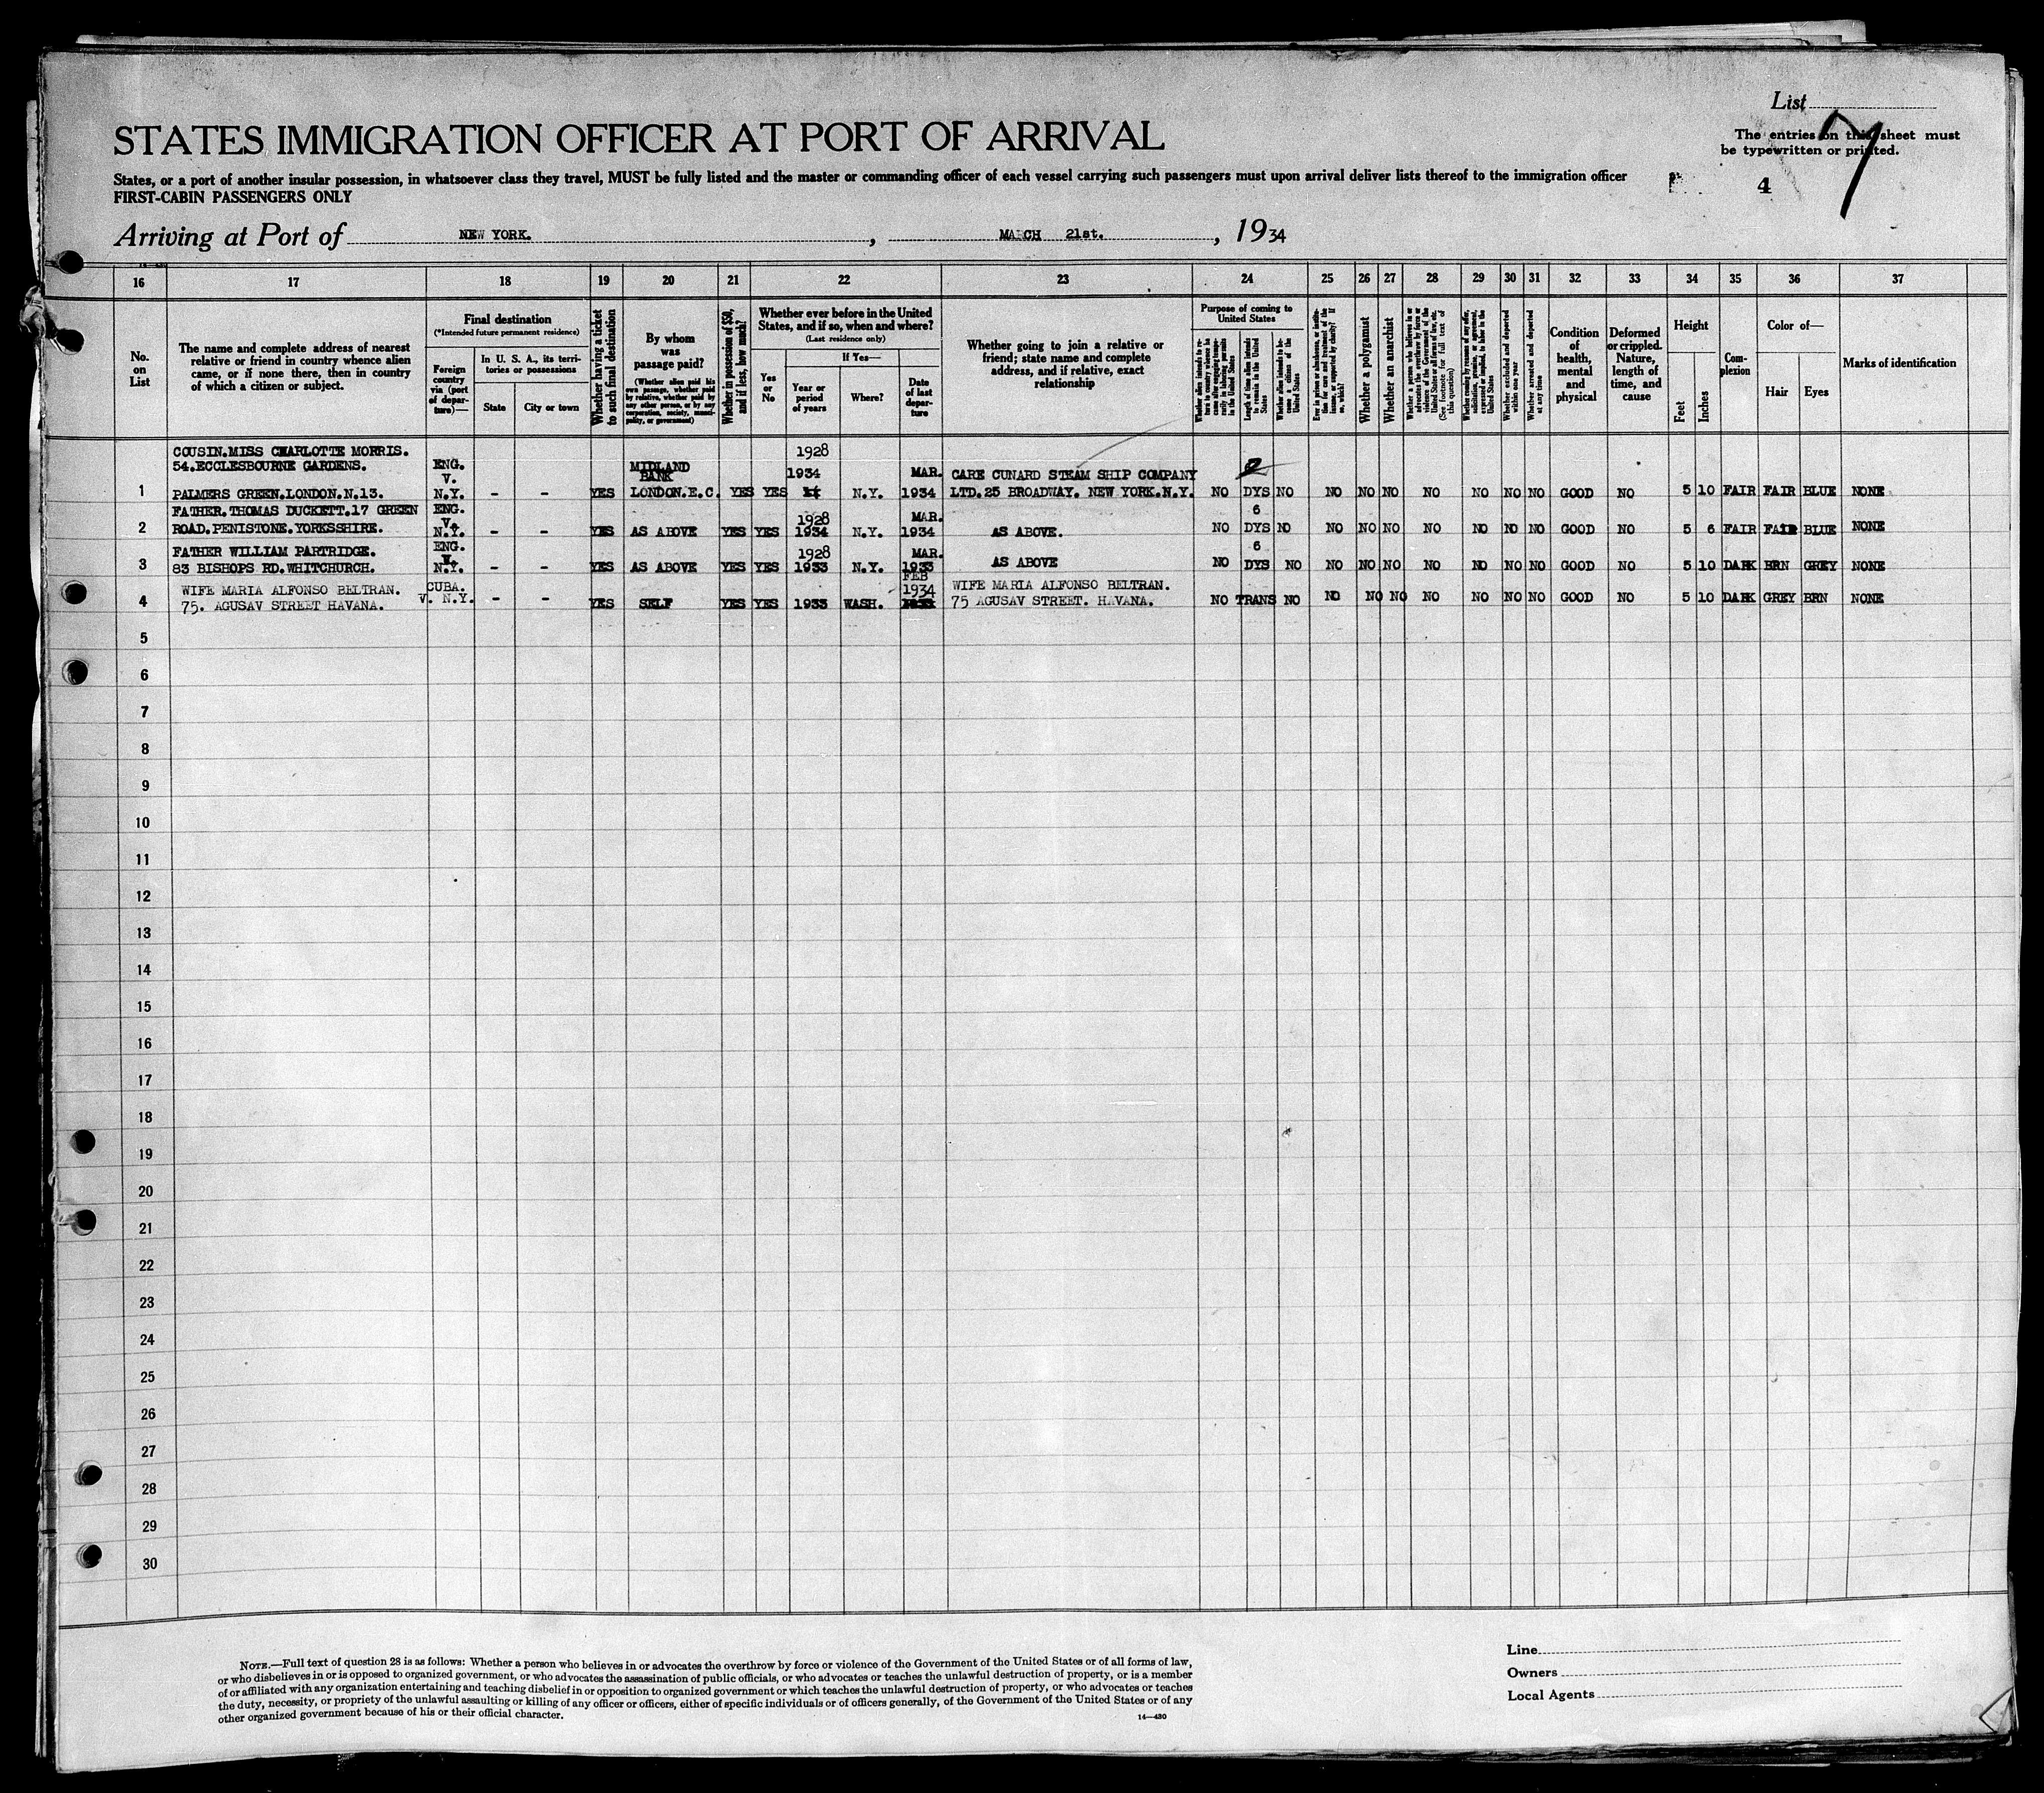 List
7
STATES IMMIGRATION OFFICER AT PORT OF ARRIVAL
The entries on this sheet must
be typewritten or printed.
States, or a port of another insular possession, in whatsoever class they travel, MUST be fully listed and the master or commanding officer of each vessel carrying such passengers must upon arrival deliver lists thereof to the immigration officer
4
FIRST-CABIN PASSENGERS ONLY
Arriving at Port of NEW YORK. , MARCH 21st. , 1934
16 17 18 19 20 21 22 23 24 25 26 27 28 29 30 31 32 33 34 35 36 37
No. on List
The name and complete address of nearest relative or friend in country whence alien came, or if none there, then in country of which a citizen or subject.
Final destination
(*Intended future permanent residence)
Foreign country via (port of departure)—
In U. S. A., its territories or possessions
State
City or town
Whether having a ticket to such final destination
By whom was passage paid?
(Whether alien paid his own passage, whether paid by relative, whether paid by any other person, or by any corporation, society, municipality, or government)
Whether in possession of $50, and if less, how much?
Whether ever before in the United States, and if so, when and where?
(Last residence only)
Yes or No
If Yes—
Year or period of years
Where?
Date of last departure
Whether going to join a relative or friend; state name and complete address, and if relative, exact relationship
Purpose of coming to United States
Whether alien intends to return to country whence he came after engaging temporarily in laboring pursuits in the United States
Length of time alien intends to remain in the United States
Whether alien intends to become a citizen of the United States
Ever in prison or almshouse, or institution for care and treatment of the insane, or supported by charity? If so, which?
Whether a polygamist
Whether an anarchist
Whether a person who believes in or advocates the overthrow by force or violence of the Government of the United States or all forms of law, etc. (See footnote for full text of this question)
Whether coming by reason of any offer, solicitation, promise, or agreement, expressed or implied, to labor in the United States
Whether excluded and deported within one year
Whether arrested and deported at any time
Condition of health, mental and physical
Deformed or crippled. Nature, length of time, and cause
Height
Feet
Inches
Complexion
Color of—
Hair
Eyes
Marks of identification
COUSIN.MISS CHARLOTTE MORRIS. 1928
54.ECCLESBOURNE GARDENS. ENG. V. MIDLAND BANK 1934 MAR. CARE CUNARD STEAM SHIP COMPANY
1 PALMERS GREEN.LONDON.N.13. N.Y. - - YES LONDON.E.C. YES YES N.Y. 1934 LTD.25 BROADWAY. NEW YORK.N.Y. NO DYS NO NO NO NO NO NO NO NO GOOD NO 5 10 FAIR FAIR BLUE NONE
FATHER.THOMAS DUCKETT.17 GREEN ENG. V. 1928 MAR. 6
2 ROAD.PENISTONE.YORKSSHIRE. N.Y. - - YES AS ABOVE YES YES 1934 N.Y. 1934 AS ABOVE. NO DYS NO NO NO NO NO NO NO NO GOOD NO 5 6 FAIR FAIR BLUE NONE
FATHER WILLIAM PARTRIDGE. ENG. V. 1928 MAR. 6
3 83 BISHOPS RD.WHITCHURCH. N.Y. - - YES AS ABOVE YES YES 1933 N.Y. 1933 AS ABOVE NO DYS NO NO NO NO NO NO NO NO GOOD NO 5 10 DARK BRN GREY NONE
WIFE MARIA ALFONSO BELTRAN. CUBA. FEB 1934 WIFE MARIA ALFONSO BELTRAN.
4 75. AGUSAV STREET HAVANA. V. N.Y. - - YES SELF YES YES 1933 WASH. 75 AGUSAV STREET. HAVANA. NO TRANS NO NO NO NO NO NO NO NO GOOD NO 5 10 DARK GREY BRN NONE
5
6
7
8
9
10
11
12
13
14
15
16
17
18
19
20
21
22
23
24
25
26
27
28
29
30
NOTE.—Full text of question 28 is as follows: Whether a person who believes in or advocates the overthrow by force or violence of the Government of the United States or of all forms of law,
or who disbelieves in or is opposed to organized government, or who advocates the assassination of public officials, or who advocates or teaches the unlawful destruction of property, or is a member
of or affiliated with any organization entertaining and teaching disbelief in or opposition to organized government or which teaches the unlawful destruction of property, or who advocates or teaches
the duty, necessity, or propriety of the unlawful assaulting or killing of any officer or officers, either of specific individuals or of officers generally, of the Government of the United States or of any
other organized government because of his or their official character.
14—430
Line
Owners
Local Agents